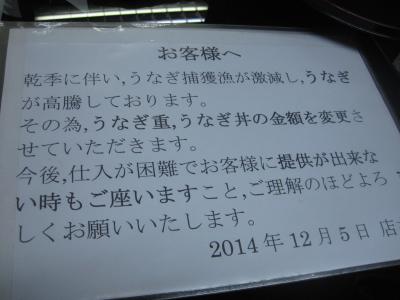 お客様へ
乾季に伴い,うなぎ捕獲漁が激減し,うなぎ
が高騰しております。
その為,うなぎ重,うなぎ丼の金額を変更さ
せていただきます。
今後,仕入が困難でお客様に提供が出来な
い時もご座いますこと,ご理解のほどよろ
しくお願いいたします。
2014年12月5日 店